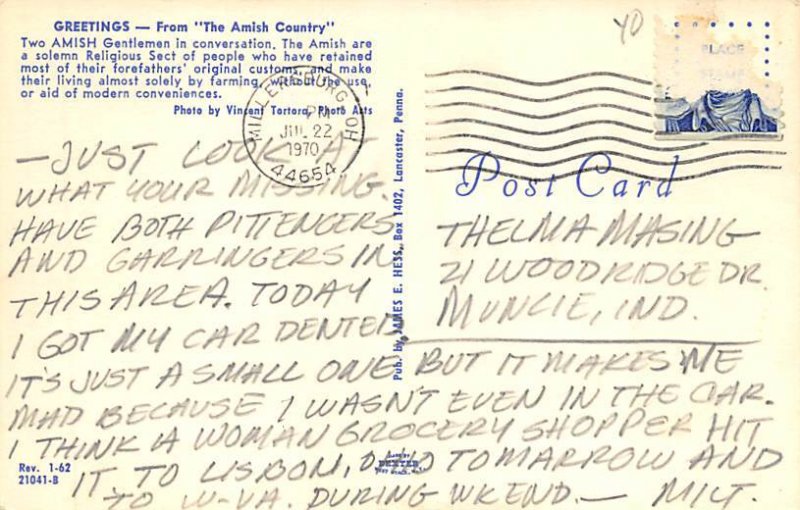 GREETINGS — From "The Amish Country"
Two AMISH Gentlemen in conversation. The Amish are
a solemn Religious Sect of people who have retained
most of their forefathers' original customs, and make
their living almost solely by farming, without the use
or aid of modern conveniences.
Photo by Vincent Tortora, Photo Arts
MILLERSBURG OH
PM
JUL 22
1970
44654
YD
PLACE
STAMP
Post Card
— JUST LOOK AT
WHAT YOUR MISSING.
HAVE BOTH PITTENGERS
AND GARRINGERS IN
THIS AREA. TODAY
I GOT MY CAR DENTED.
IT'S JUST A SMALL ONE BUT IT MAKES ME
MAD BECAUSE I WASN'T EVEN IN THE CAR.
I THINK A WOMAN GROCERY SHOPPER HIT
IT. TO LISBON, OHIO TOMARROW AND
TO W-VA. DURING WKEND. — MILT.
THELMA MASING
21 WOODRIDGE DR.
MUNCIE, IND.
Pub. by JAMES E. HESS, Box 1402, Lancaster, Penna.
Rev. 1-62
21041-B
MADE BY
DEXTER